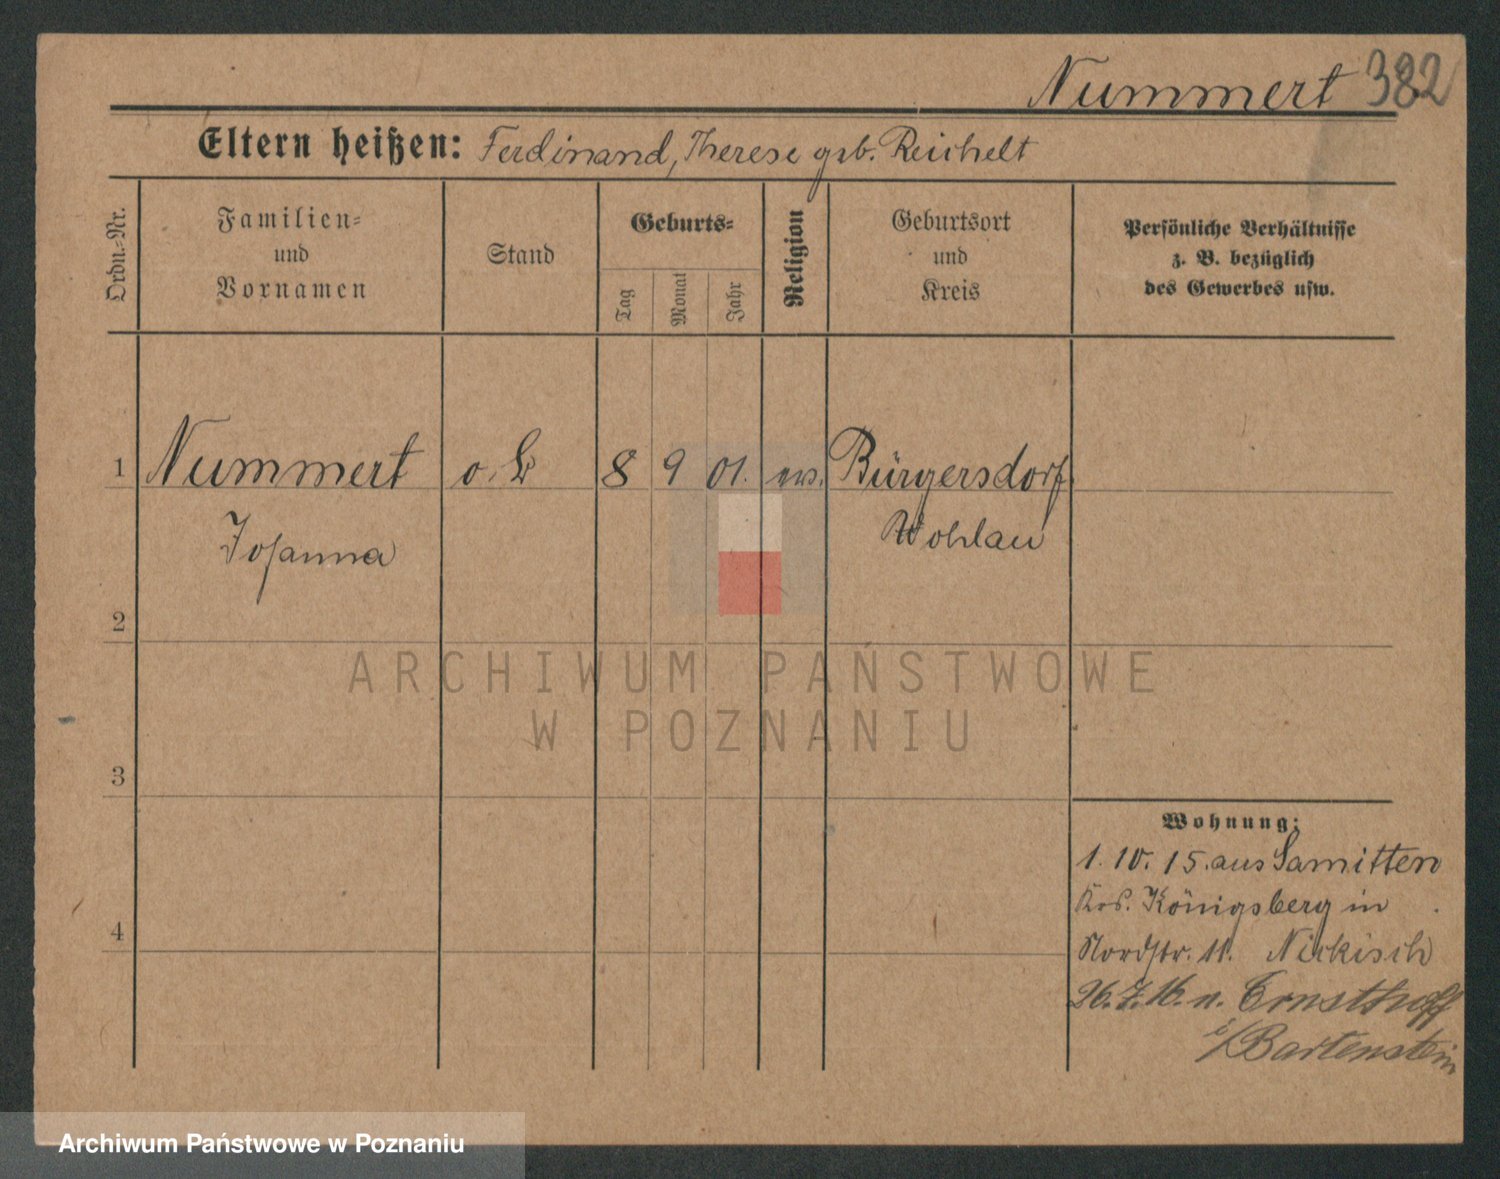 Nummert 382
Eltern heißen: Ferdinand, Therese geb. Reichelt
Ordn.-Nr.
Familien-
und
Vornamen
Stand
Geburts-
Tag
Monat
Jahr
Religion
Geburtsort
und
Kreis
Persönliche Verhältnisse
z. B. bezüglich
des Gewerbes usw.
1 Nummert o. B 8 9 01. ev. Bürgersdorf
Johanna Wohlau
2
3
4
Wohnung:
1. 10. 15. aus Samitten
Krs. Königsberg in
Nordstr. 11. Nickisch
26. 7. 16. n. Ernsthoff
i/Bartenstein
ARCHIWUM PAŃSTWOWE
W POZNANIU
Archiwum Państwowe w Poznaniu